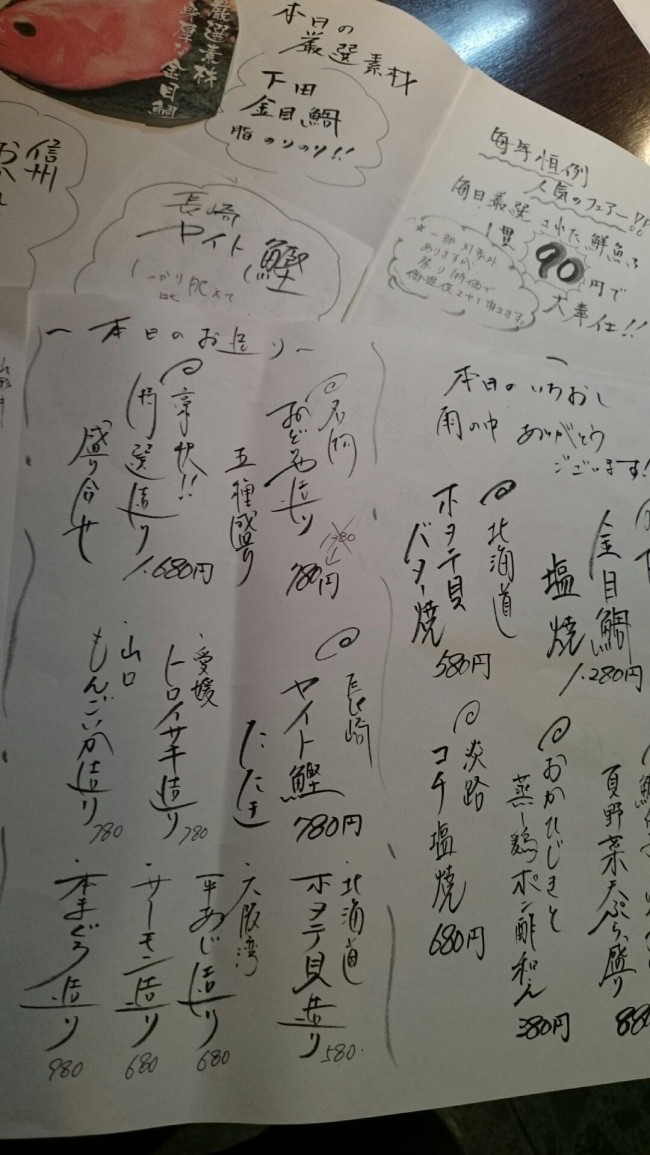 厳選素材
金目鯛
本日の
厳選素材
下田
金目鯛
脂のりのり!!
信州
長崎
ヤイト鰹
毎年恒例
人気のフェアー!!
毎日厳選された鮮魚を
1貫
90円で
大奉仕!!
★一部対象外
ありますが
祭り特価で
御提供させて頂きます
〜本日のお造り〜
名物
おどろき造り
五種盛り
1.380
↓
780円
豪快!!
特選造り
盛り合せ
1.680円
長崎
ヤイト鰹
たたき
780円
・愛媛
トロイサキ造り
780
・山口
もんごいか造り
780
・北海道
ホタテ貝造り
580
・大阪湾
平あじ造り
680
・サーモン造り
680
・本まぐろ造り
980
本日のいちおし
雨の中 ありがとう
ございます!
金目鯛
塩焼
1.280円
北海道
ホタテ貝
バター焼
580円
夏野菜天ぷら盛り
おかひじきと
蒸し鶏ポン酢和え
380円
淡路
コチ塩焼
680円